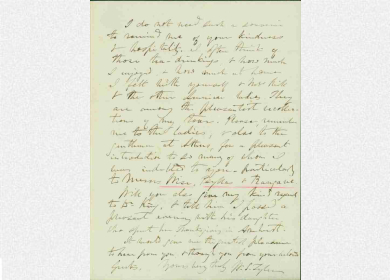 I do not need such a souvenir
to remind me of your kindness
& hospitality. I often think of
those tea-drinkings & how much
I enjoyed & how much at home
I felt with yourself &
& the other ladies. They
are among the pleasantest recollec-
tions of my tour. Please remem
me to the ladies, & also to the
gentlemen at for a pleasant
introduction to so many of whom I
am indebted to you - particularly
to Messrs &
Will you also give my kind regards
to Dr. King, & tell him I passed a
pleasant evening with his daughter
who spent her Thanksgiving in Amherst.
It would give me the greatest pleasure
to hear from you & through you from your
Yours truly W. S. Tyler